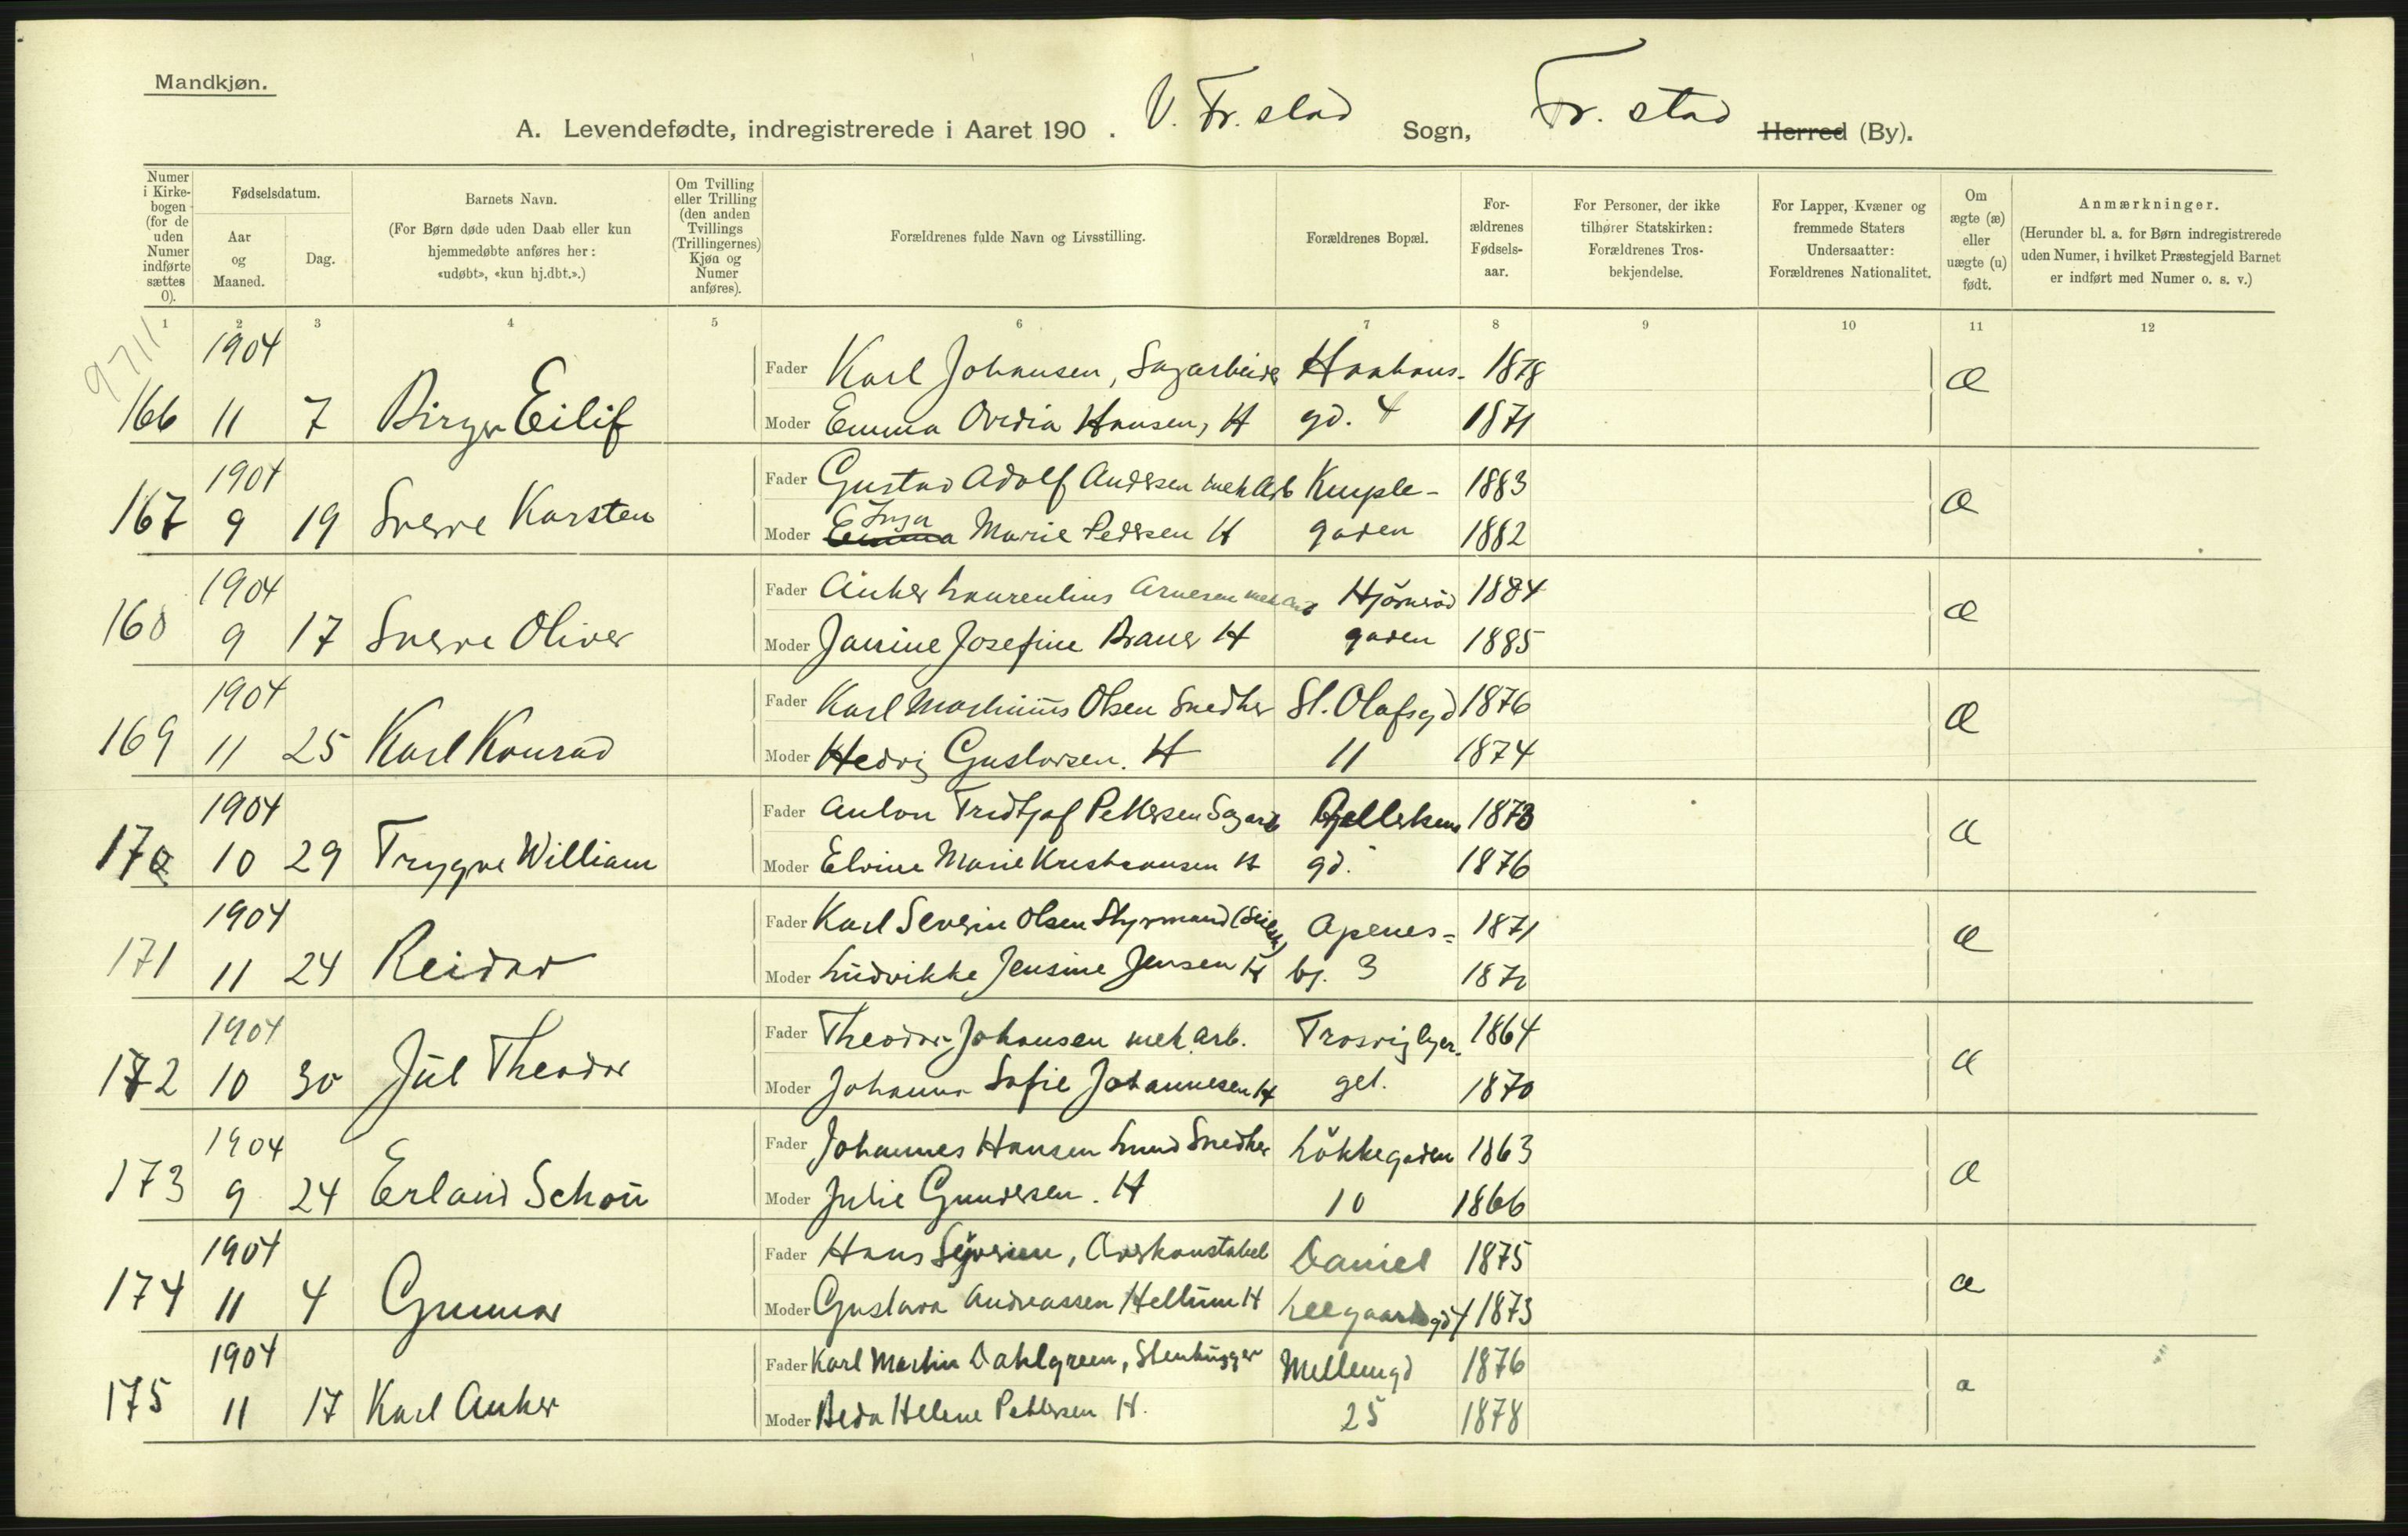 Mandkjøn.
A. Levendefødte, indregistrerede i Aaret 190 . V. Fr. stad Sogn, Fr. stad Herred (By).
Numer i Kirke-bogen (for de uden Numer indførte sættes 0).
Fødselsdatum.
Aar og Maaned.
Dag.
Barnets Navn.
(For Børn døde uden Daab eller kun hjemmedøbte anføres her: «udøbt», «kun hj.dbt.».)
Om Tvilling eller Trilling (den anden Tvillings (Trillingernes) Kjøn og Numer anføres).
Forældrenes fulde Navn og Livsstilling.
Forældrenes Bopæl.
For-ældrenes Fødsels-aar.
For Personer, der ikke tilhører Statskirken: Forældrenes Tros-bekjendelse.
For Lapper, Kvæner og fremmede Staters Undersaatter: Forældrenes Nationalitet.
Om ægte (æ) eller uægte (u) født.
Anmærkninger.
(Herunder bl. a. for Børn indregistrerede uden Numer, i hvilket Præstegjeld Barnet er indført med Numer o. s. v.)
1 2 3 4 5 6 7 8 9 10 11 12
9711
1904 Fader Karl Johansen, Sagarbeider 1878 æ
166 11 7 Birger Eilif Moder Emma Ovidia Hansen, H gd. 4 1871
1904 Fader Gustav Adolf Andersen mek Arb Kurple- 1883 æ
167 9 19 Sverre Karsten Moder Emma Inga Marie Pedersen H gaden 1882
1904 Fader Anker Laurentius Arnesen mek arb 1884 æ
168 9 17 Sverre Oliver Moder Janine Josefine H gaden 1885
1904 Fader Karl Mathinius Olsen Snedker St. Olafsgd 1876 æ
169 11 25 Karl Konrad Moder Hedvig Gustavsen. H 11 1874
1904 Fader Anton Fridtjof Pettersen Sagarb 1873 æ
170 10 29 Trygve William Moder Elvine Marie Kristiansen H gd. 1876
1904 Fader Karl Severin Olsen Styrmand Apenes- 1871 æ
171 11 24 Reidar Moder Ludvikke Jensine Jensen H bg. 3
1904 Fader Theodor Johansen mek. arb. 1864 æ
172 10 30 Jul Theodor Moder Johanne Sofie Johannesen H 1870
1904 Fader Johannes Hansen Lund Snedker Løkkegaden 1863 æ
173 9 24 Erland Schou Moder Julie Gundersen. H 10 1866
1904 Fader Hans Syversen, Overkonstabel Daniel 1875 æ
174 11 4 Gunnar Moder Gustava Andreassen Hellum H Leegaards gd 4 1873
1904 Fader Karl Martin Dahlgreen, Stenhugger Mellemgd 1876 æ
175 11 17 Karl Anker Moder Beda Helene Pettersen H. 25 1878